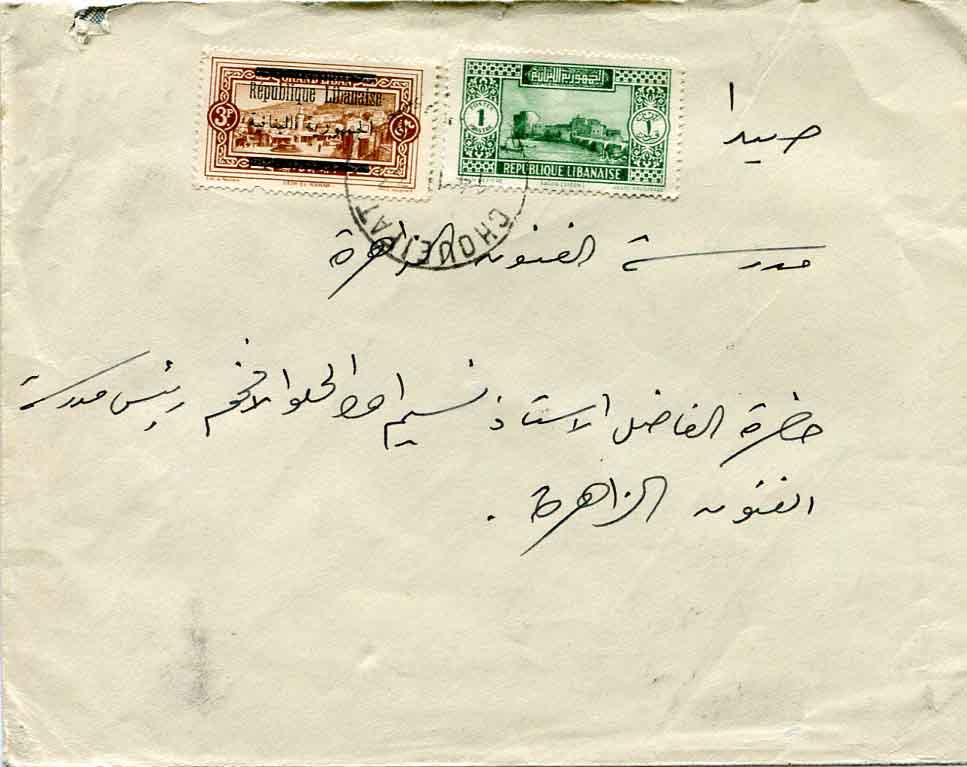 GRAND LIBAN
République Libanaise
الجمهورية اللبنانية
3P
الجمهورية اللبنانية
1
PIASTRE
١
REPUBLIQUE LIBANAISE
CHOUEIFAT
صيدا
مدرسة الفنون الزاهرة
حضرة الفاضل الاستاذ نسيم الحلو الافخم رئيس مدرسة
الفنون الزاهرة .